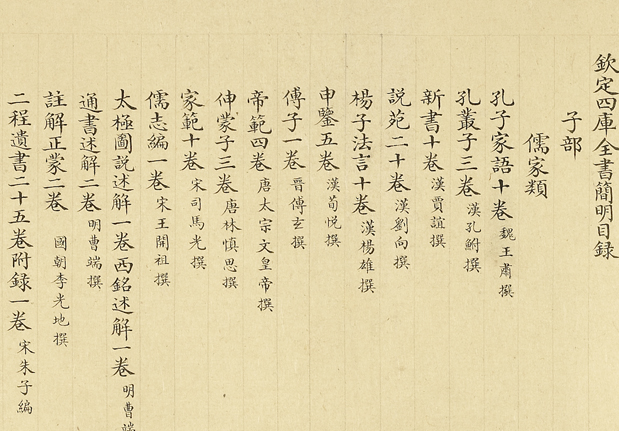 欽定四庫全書簡明目録
子部
儒家類
孔子家語十卷 魏王肅撰
孔叢子三卷 漢孔鮒撰
新書十卷 漢賈誼撰
説苑二十卷 漢劉向撰
楊子法言十卷 漢楊雄撰
申鑒五卷 漢荀悦撰
傅子一卷 晉傅玄撰
帝範四卷 唐太宗文皇帝撰
伸蒙子三卷 唐林慎思撰
家範十卷 宋司馬光撰
儒志編一卷 宋王開祖撰
太極圖説述解一卷西銘述解一卷 明曹端
通書述解二卷 明曹端撰
註解正蒙二卷 國朝李光地撰
二程遺書二十五卷附録一卷 宋朱子編